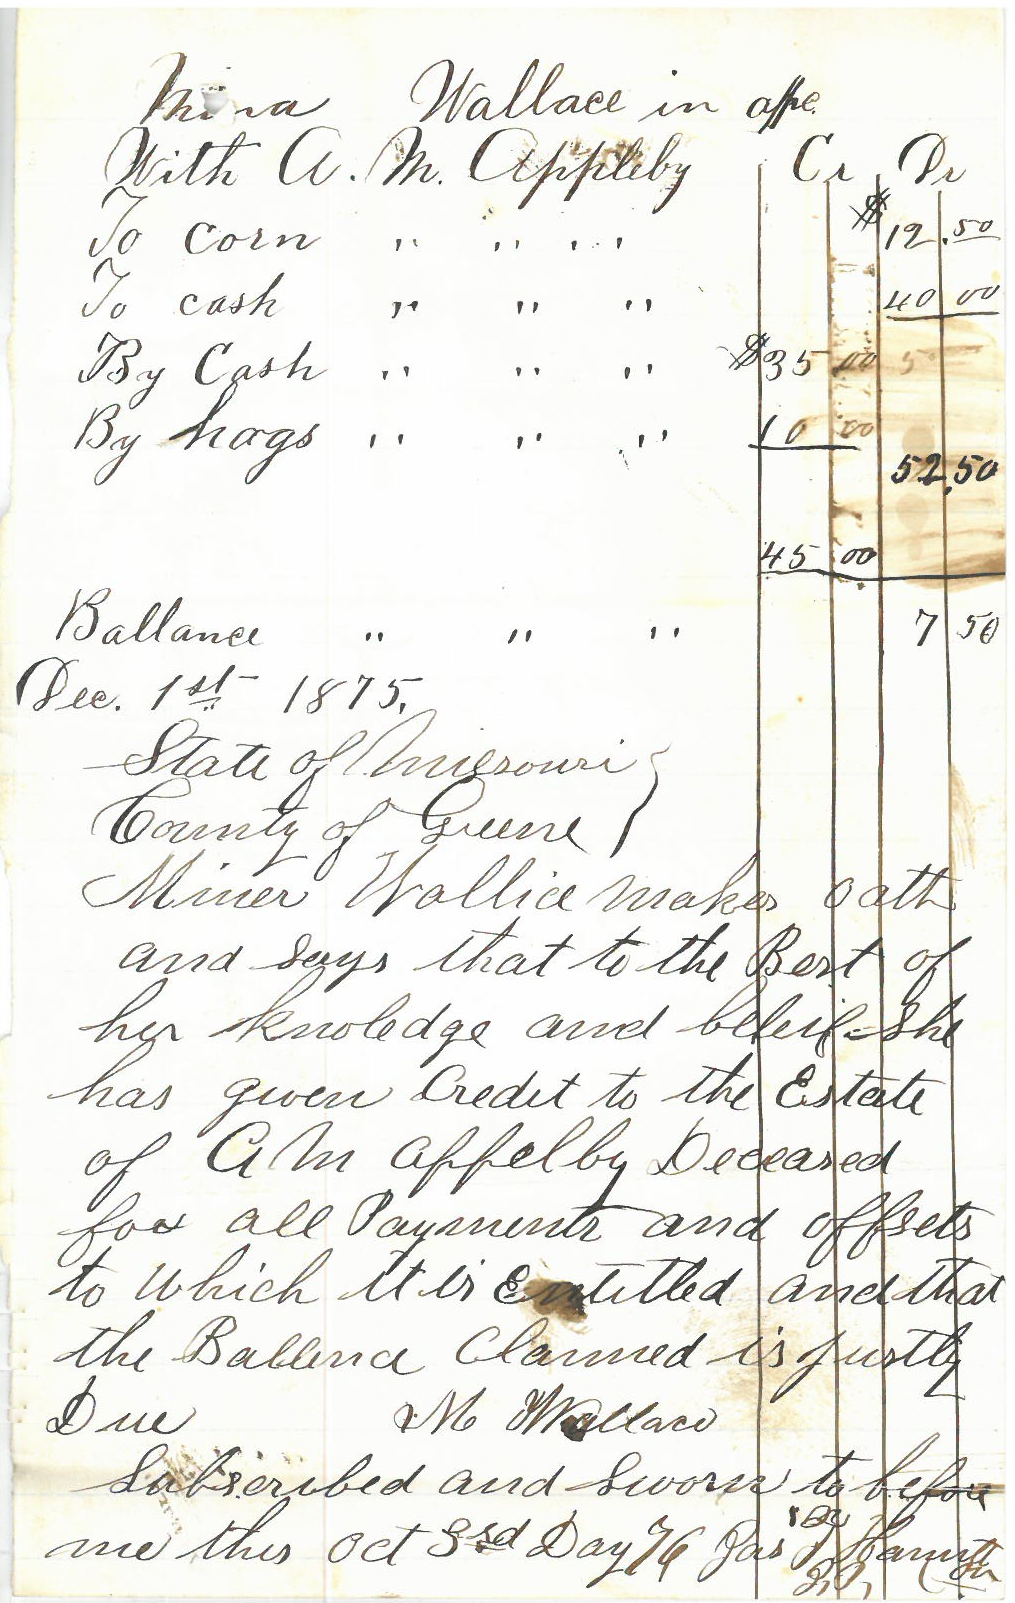 Mina Wallace in
With A. M. Appleby Cr Dr
To corn " " " " $12.50
To cash " " " 40 00
By Cash " " " $35 00
By hogs " " " 10 00
52.50
45 00
Ballance " " " 7 50
Dec. 1st 1875.
State of Missouri }
County of Greene }
Miner Wallice makes oath
and says that to the Best of
her knoledge and beleif She
has given Credit to the Estate
of A M Appelby Deceased
for all Payments and offsets
to which it is Entitled and that
the Ballence Claimed is justly
Due M Wallace
Subscribed and Sworn to before
me this Oct 3rd Day 76 Jas